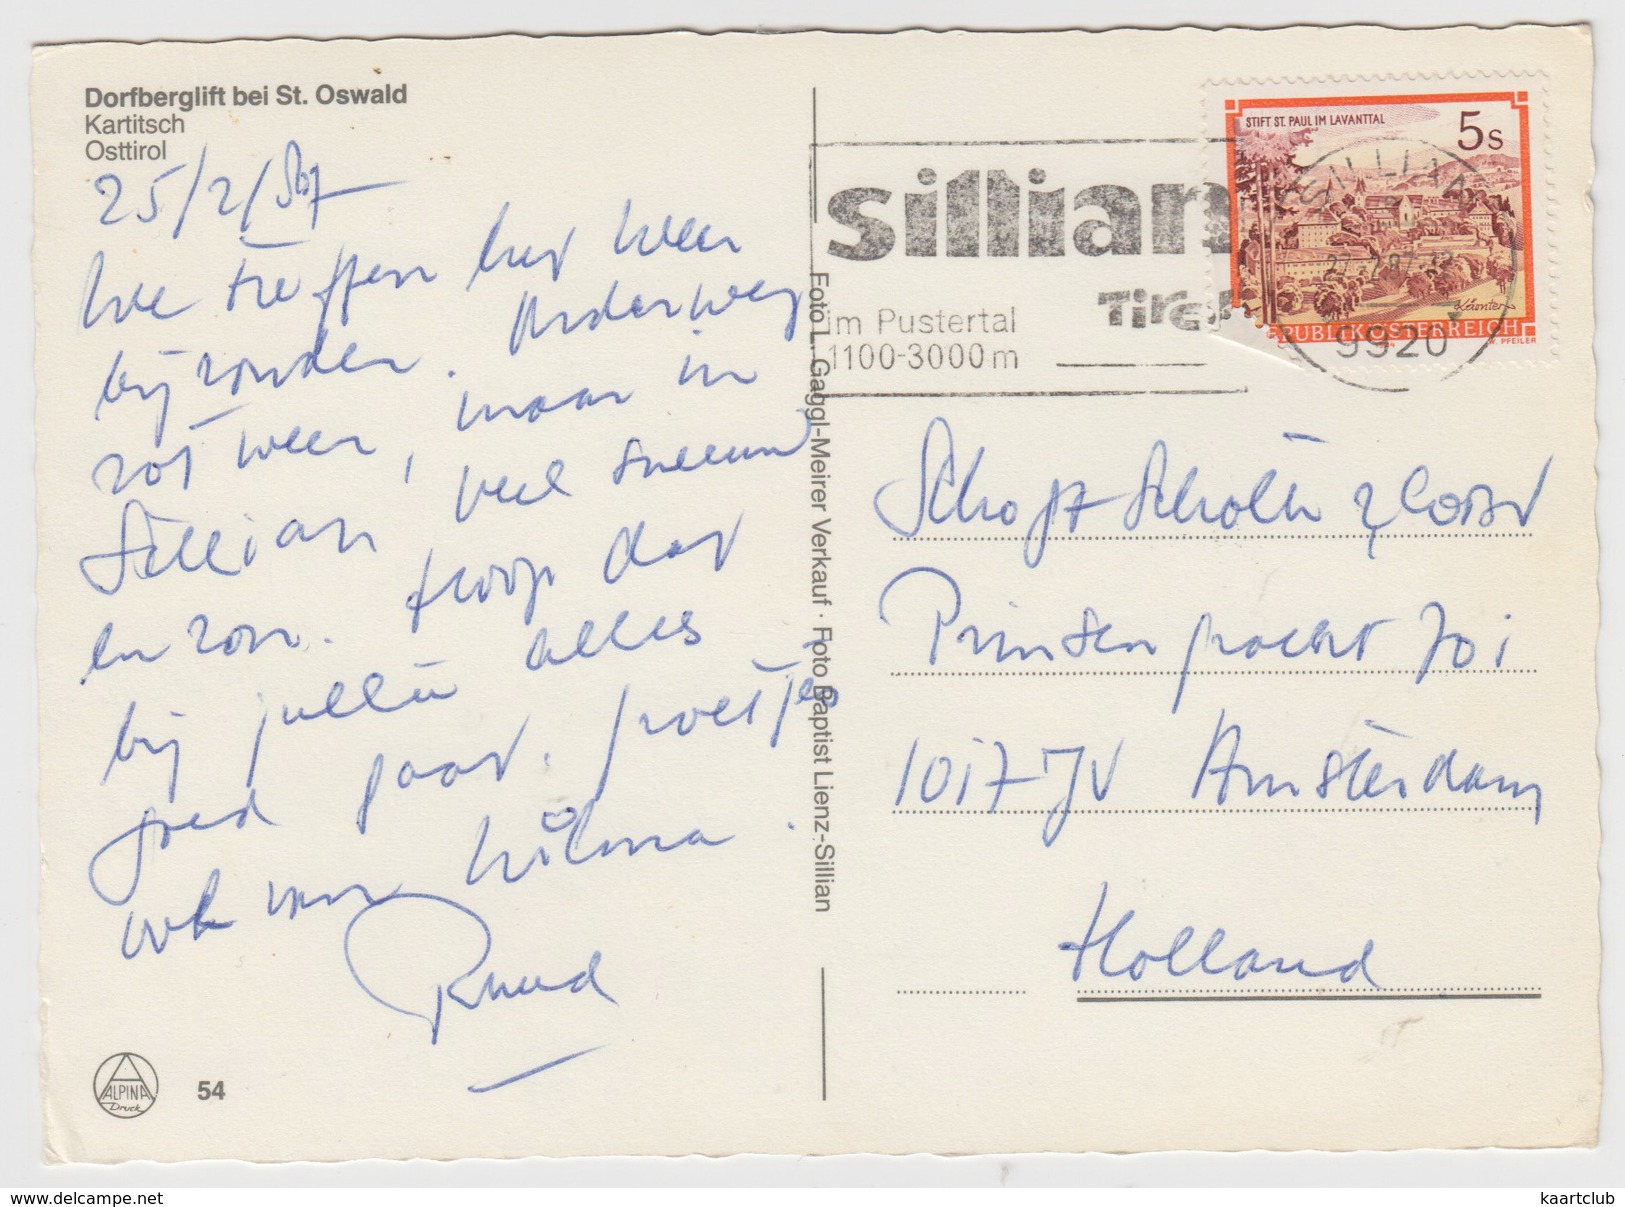 Dorfberglift bei St. Oswald
Kartitsch
Osttirol
25/2/87
We treffen het weer
bijzonder. Onderweg
rot weer, maar in
Sillian veel sneeuw
en zon. Hoop dat
bij jullie alles
goed gaat. Groetjes
ook van Wilma.
Ruud
ALPINA
Druck
54
Foto L. Gaggl-Meirer Verkauf · Foto Baptist Lienz-Sillian
sillian
Tirol
im Pustertal
1100-3000 m
STIFT ST. PAUL IM LAVANTTAL
5s
REPUBLIK ÖSTERREICH
W. PFEILER
SILLIAN
27.-2.87-12
9920
Prinsengracht 701
1017 JV Amsterdam
Holland
www.delcampe.net
kaartclub